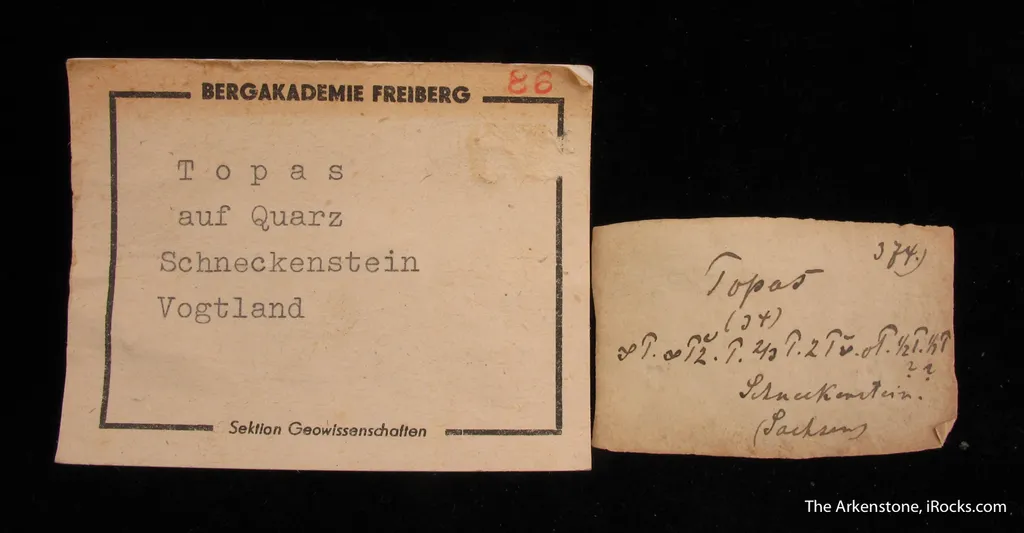 BERGAKADEMIE FREIBERG
86
T o p a s
auf Quarz
Schneckenstein
Vogtland
Sektion Geowissenschaften
374.)
Topas
(34)
Schneckenstein.
(Sachsen)
The Arkenstone, iRocks.com